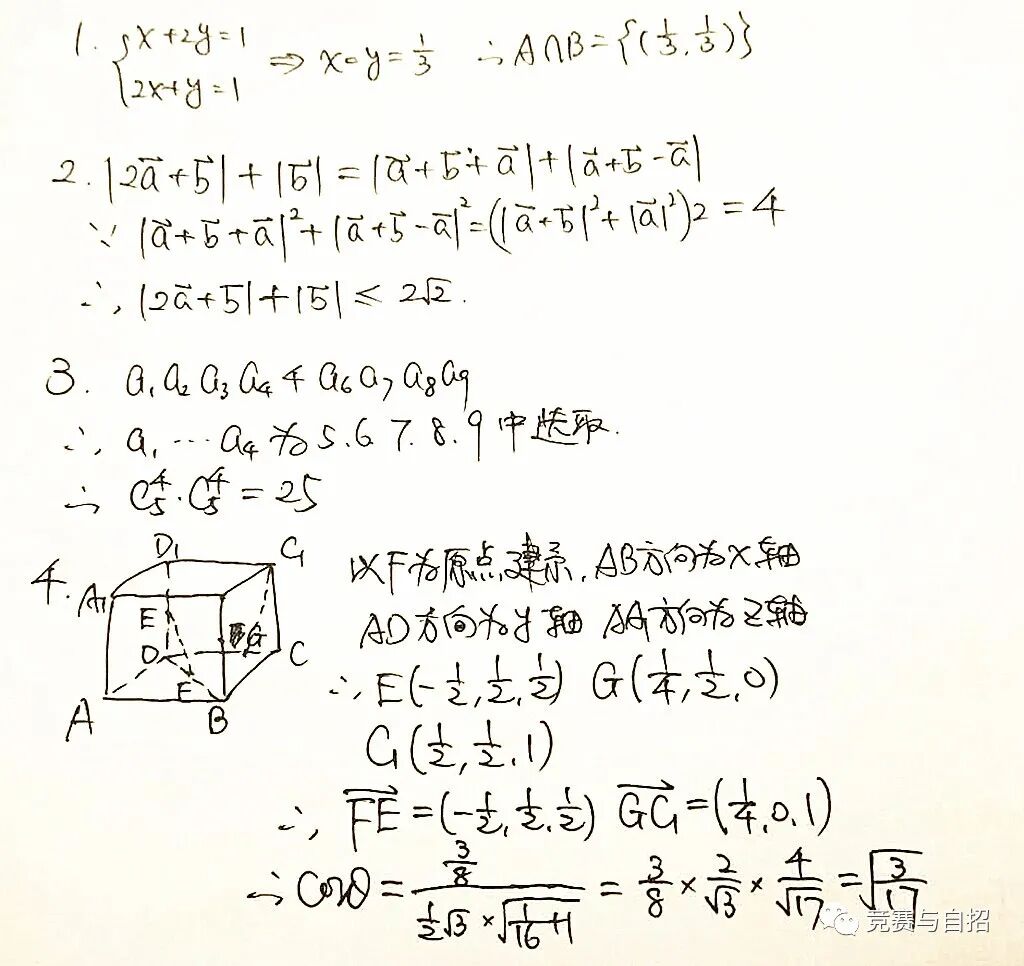 1. {x+2y=1
2x+y=1 ⇒ x=y=1/3 ∴A∩B={(1/3,1/3)}
2. |2a⃗+b⃗|+|b⃗|=|a⃗+b⃗+a⃗|+|a⃗+b⃗-a⃗|
∵ |a⃗+b⃗+a⃗|²+|a⃗+b⃗-a⃗|²=(|a⃗+b⃗|²+|a⃗|²)2=4
∴, |2a⃗+b⃗|+|b⃗|≤2√2.
3. a₁a₂a₃a₄4a₆a₇a₈a₉
∴, a₁…a₄为5.6.7.8.9中选取.
∴ C₅⁴·C₅⁴=25
4. D₁ C₁
A₁
E
D G C
F
A B
以F为原点建系,AB方向为x轴
AD方向为y轴 AA₁方向为z轴
∴, E(-1/2,1/2,1/2) G(1/4,1/2,0)
C₁(1/2,1/2,1)
∴, FE⃗=(-1/2,1/2,1/2) GC₁⃗=(1/4,0,1)
∴ cosθ=(3/8)/(1/2√3×√(1/16+1))=3/8×2/√3×4/√17=√(3/17)
竞赛与自招